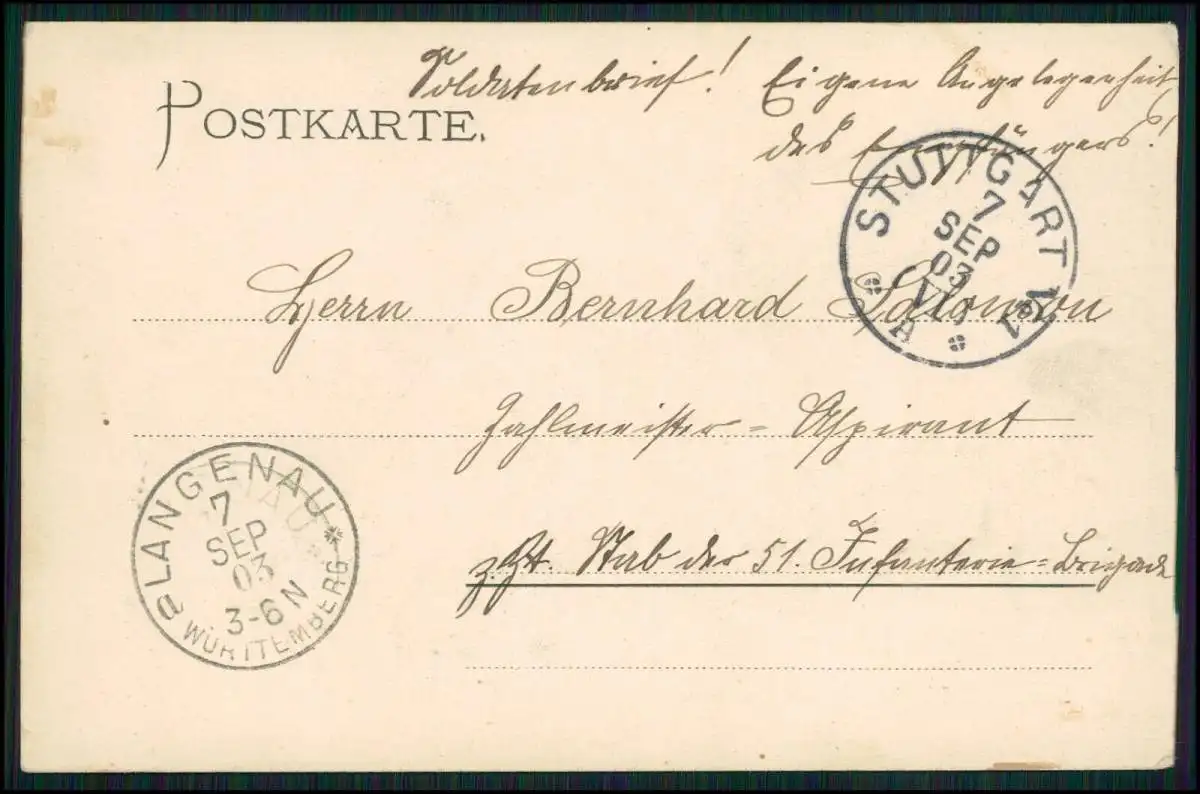 Soldatenbrief! Eigene Angelegenheit
des Empfängers!
POSTKARTE.
STUTTGART No 1
7
SEP
03
VII
A
Herrn Bernhard Salomon
Zahlmeister-Aspirant
z. Zt. Stab der 51. Infanterie-Brigade
LANGENAU
7
SEP
03
3-6 N
WÜRTTEMBERG